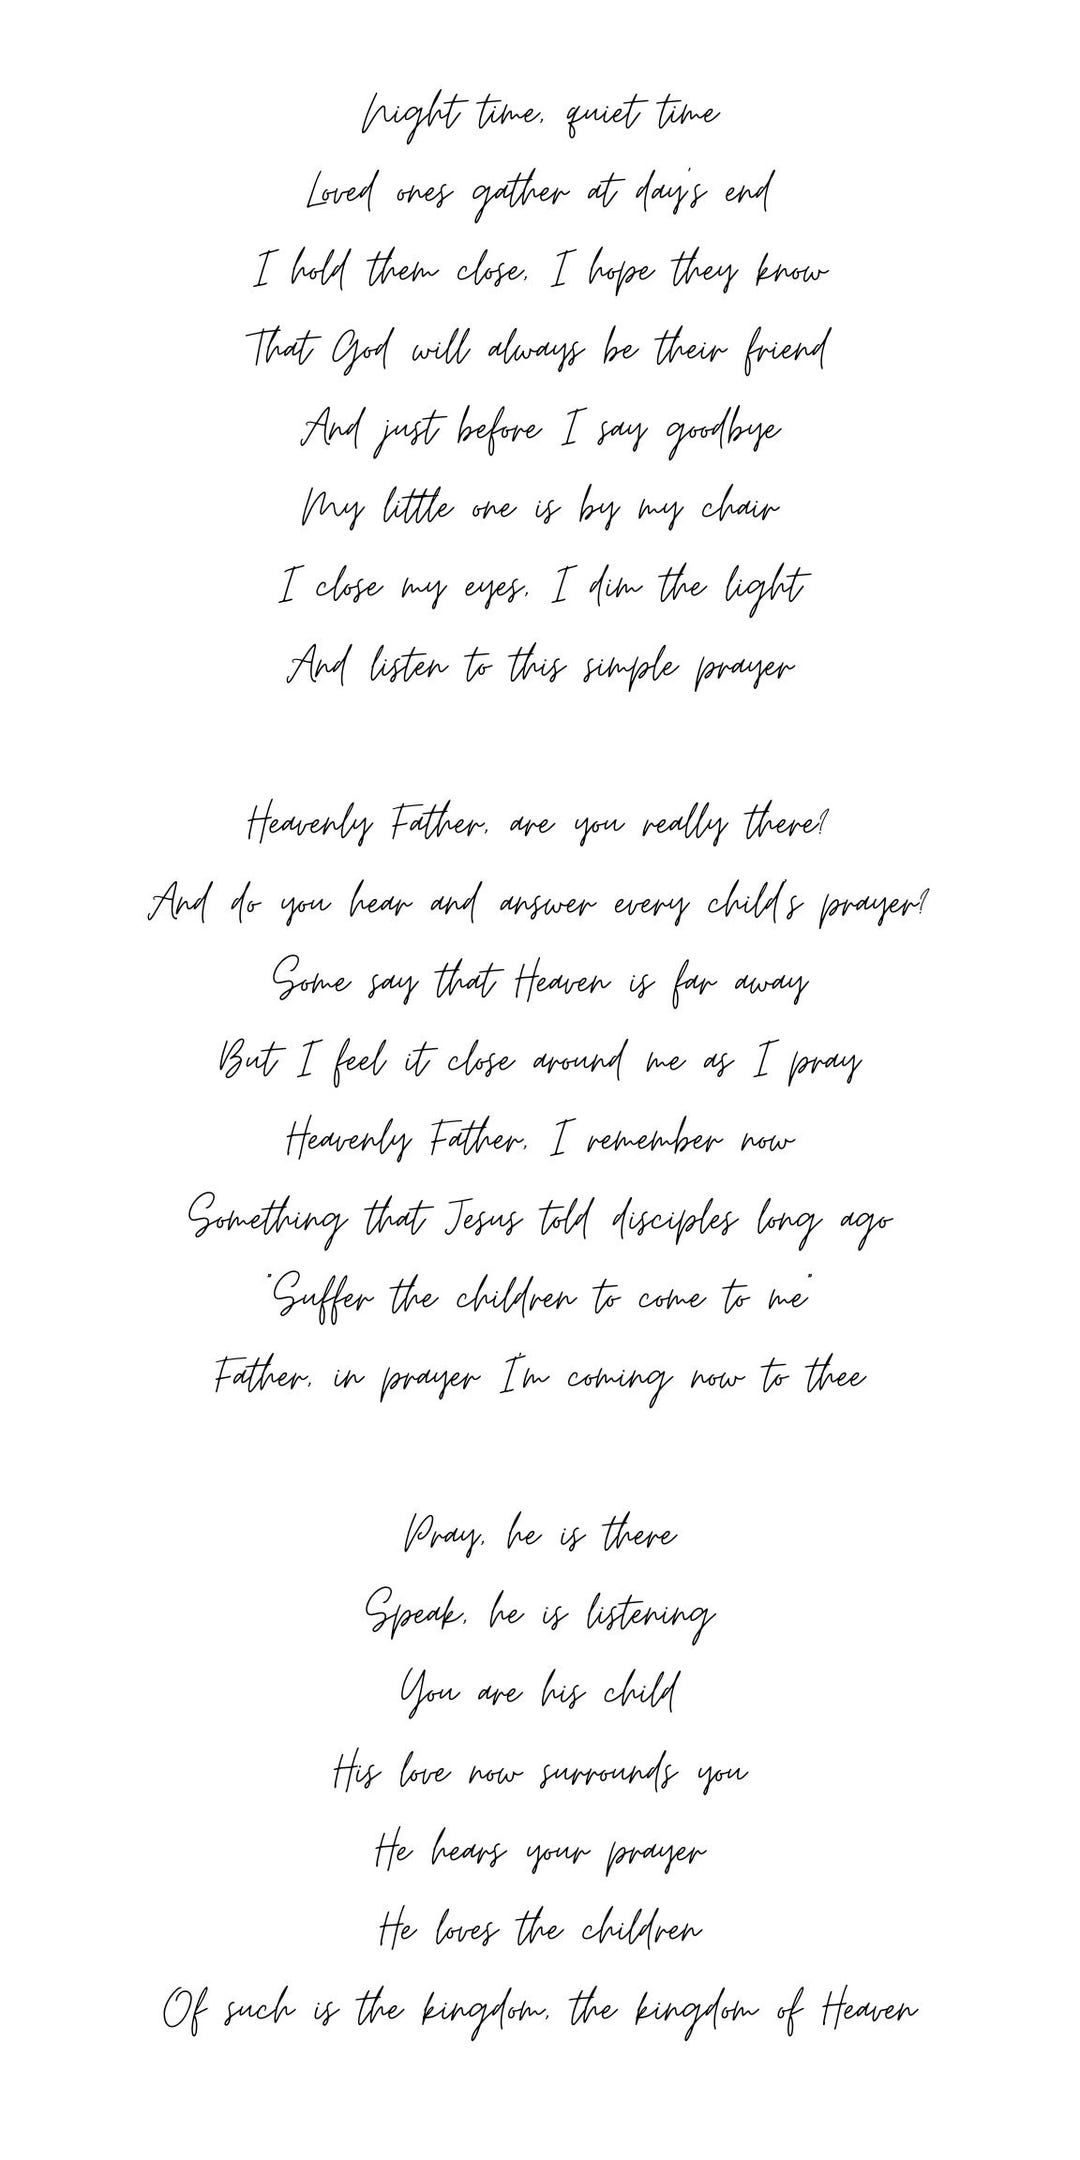 Night time, quiet time
Loved ones gather at day's end
I hold them close, I hope they know
That God will always be their friend
And just before I say goodbye
My little one is by my chair
I close my eyes, I dim the light
And listen to this simple prayer
Heavenly Father, are you really there?
And do you hear and answer every child's prayer?
Some say that Heaven is far away
But I feel it close around me as I pray
Heavenly Father, I remember now
Something that Jesus told disciples long ago
"Suffer the children to come to me"
Father, in prayer I'm coming now to thee
Pray, he is there
Speak, he is listening
You are his child
His love now surrounds you
He hears your prayer
He loves the children
Of such is the kingdom, the kingdom of Heaven